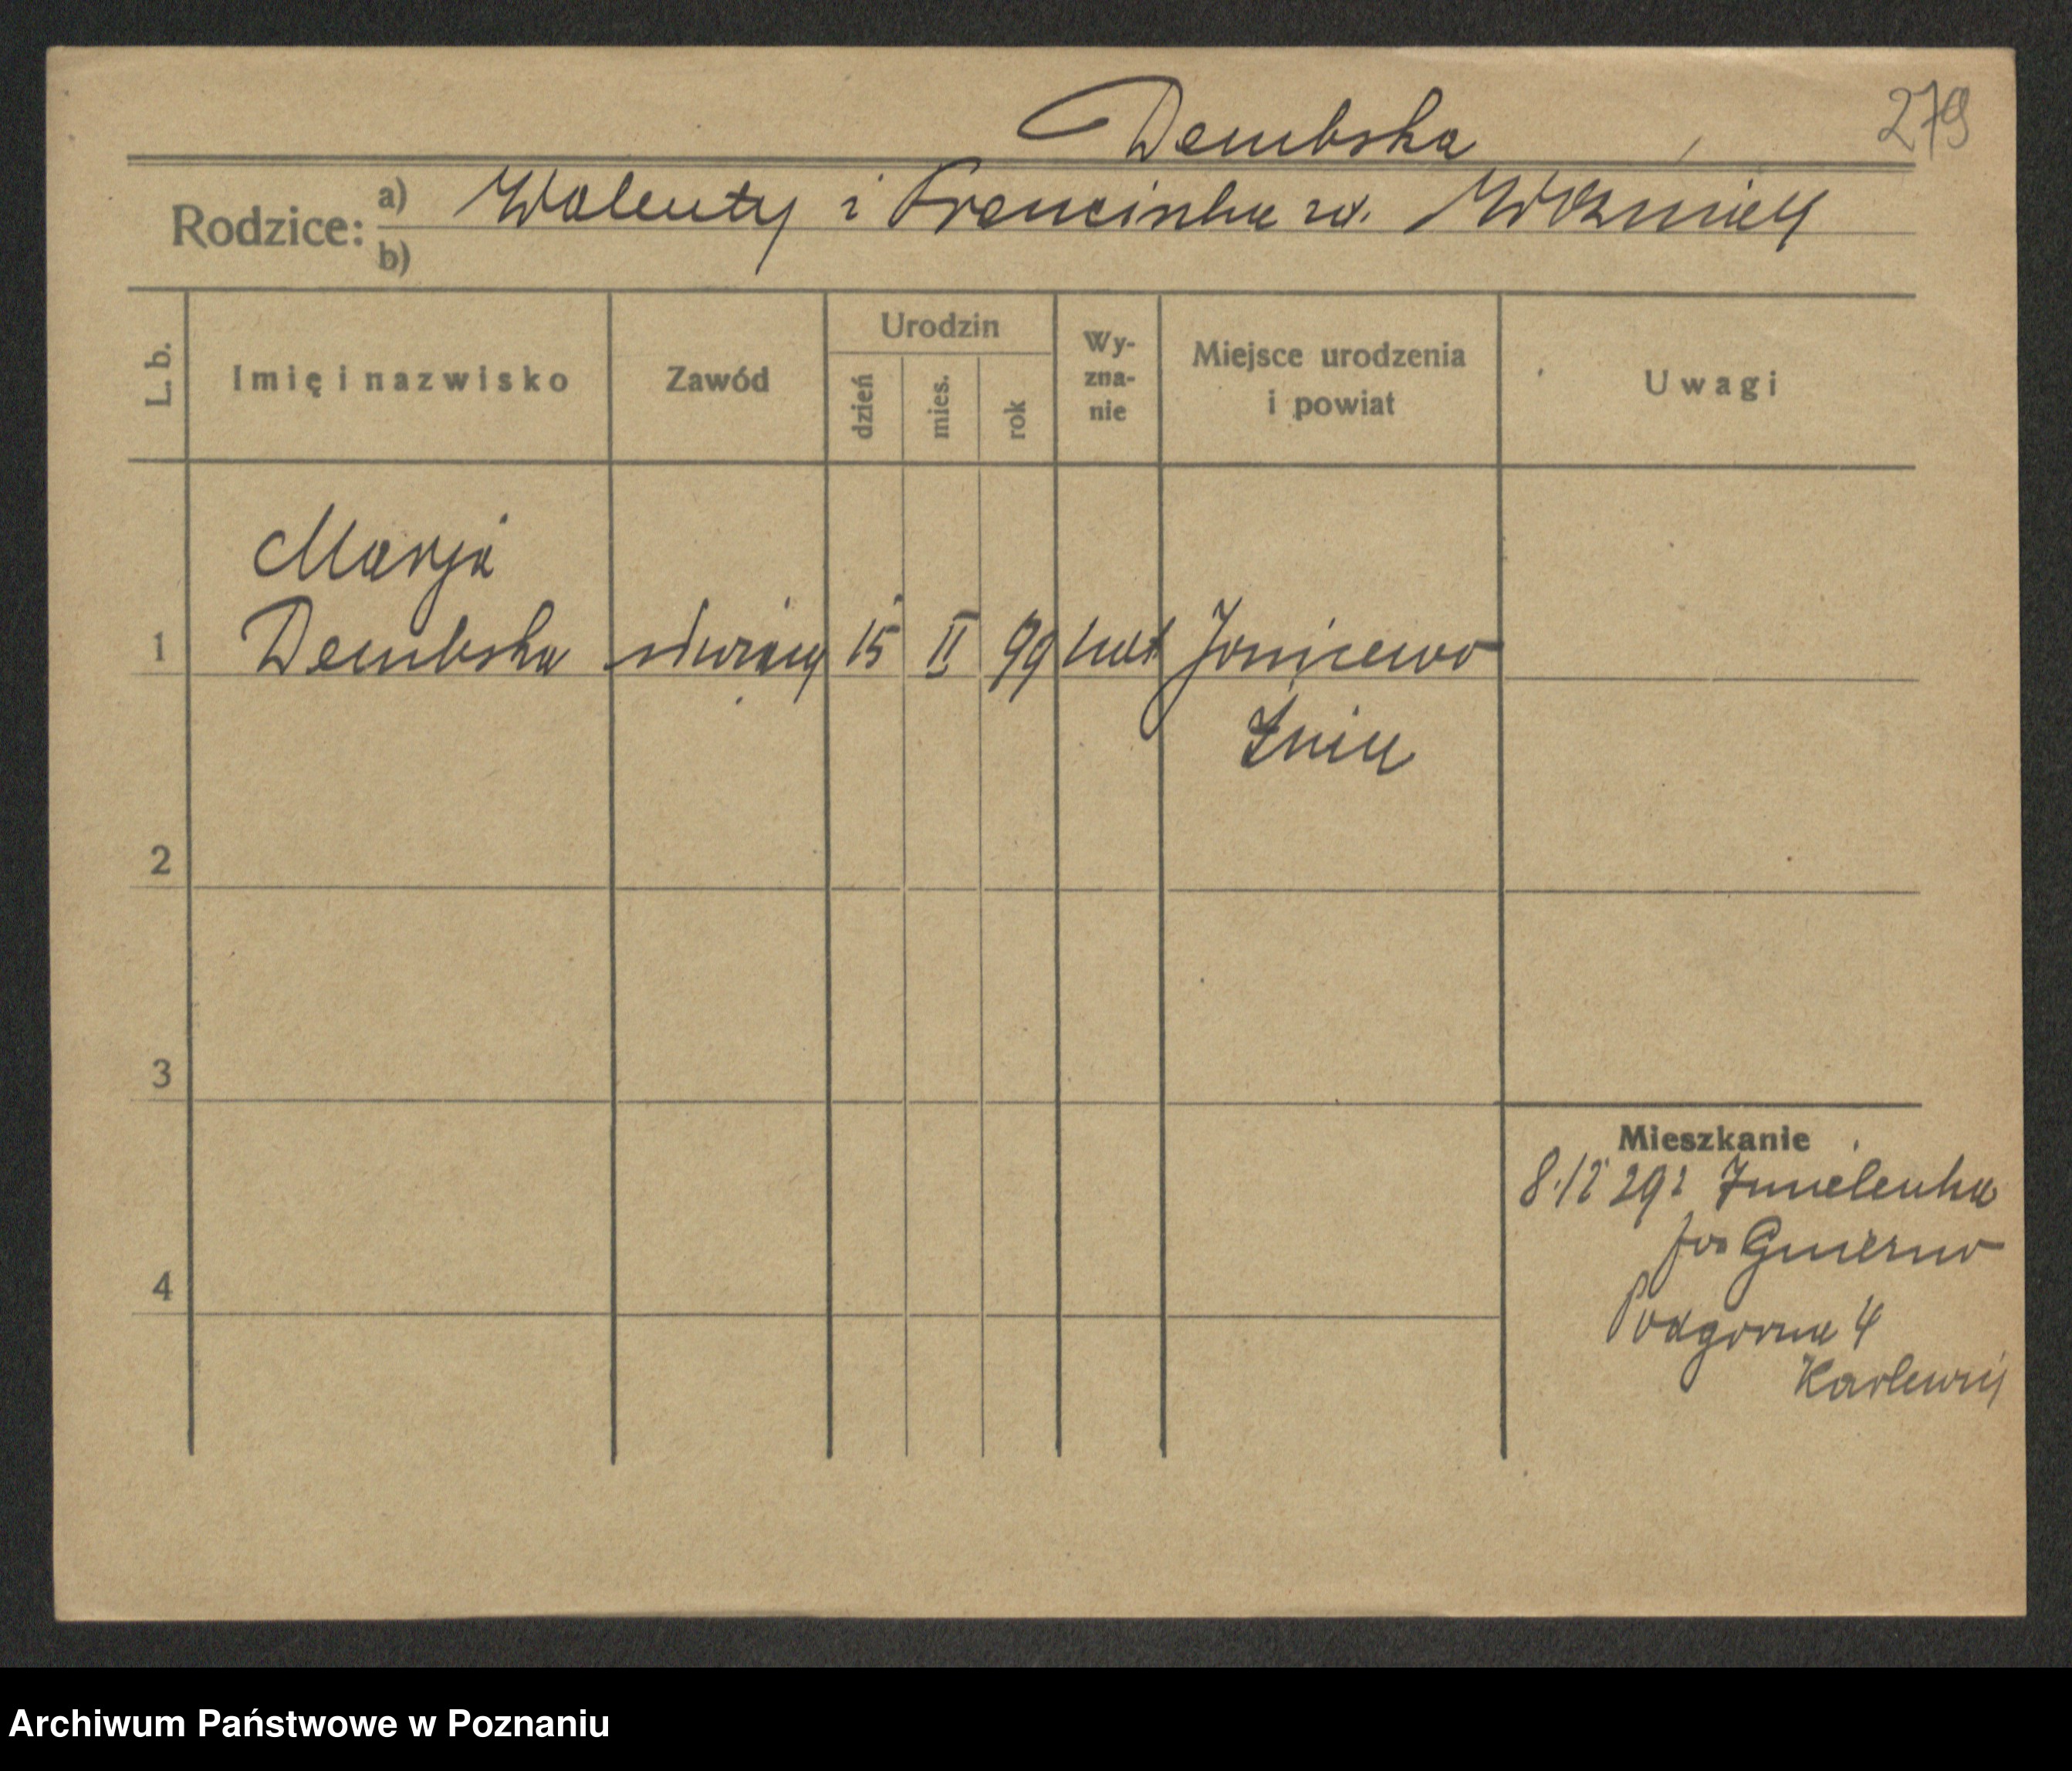 279
Dembska
Rodzice: a) Walenty i Franciszka zd. Woźniak
b)
L. b. Imię i nazwisko Zawód Urodzin dzień mies. rok Wyznanie Miejsce urodzenia i powiat Uwagi
Marja
1 Dembska służąca 15 II 99 kat Januszewo
Żnin
2
3
4
Mieszkanie
8.12 29 z
Gniezno
Podgórna 4
Archiwum Państwowe w Poznaniu